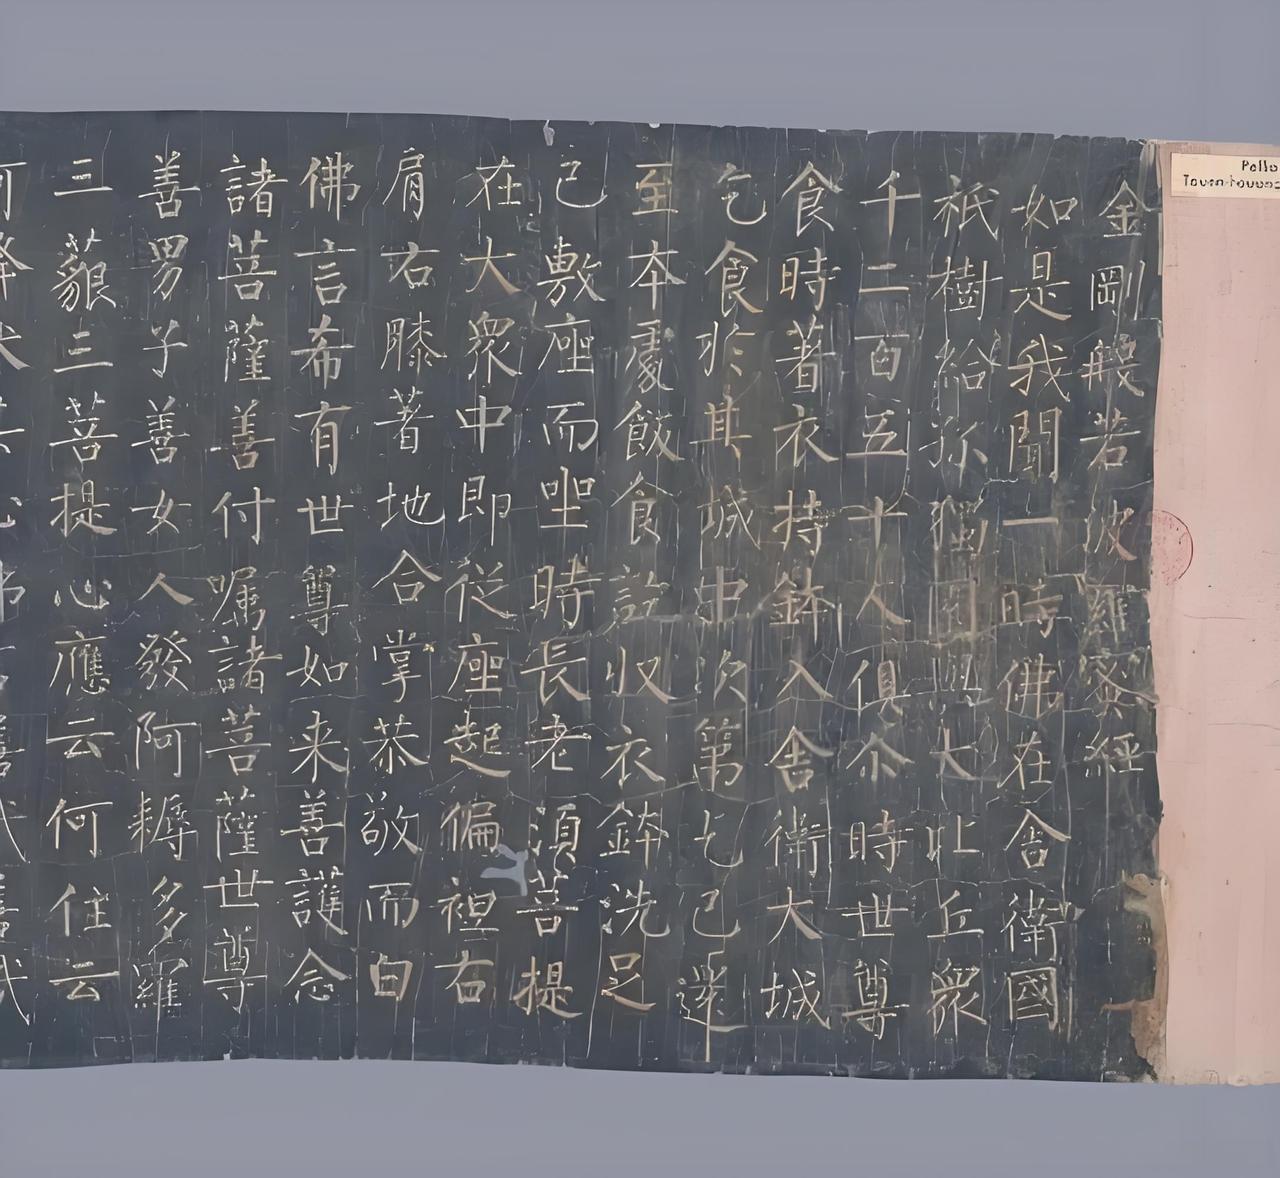 金剛般若波羅蜜經
如是我聞一時佛在舍衛國
祇樹給孤獨園與大比丘眾
千二百五十人俱尒時世尊
食時著衣持鉢入舍衛大城
乞食於其城中次第乞已還
至本處飯食訖收衣鉢洗足
已敷座而坐時長老須菩提
在大眾中即從座起偏袒右
肩右膝著地合掌恭敬而白
佛言希有世尊如来善護念
諸菩薩善付嘱諸菩薩世尊
善男子善女人發阿耨多羅
三藐三菩提心應云何住云
Pelliot
Touen-houang